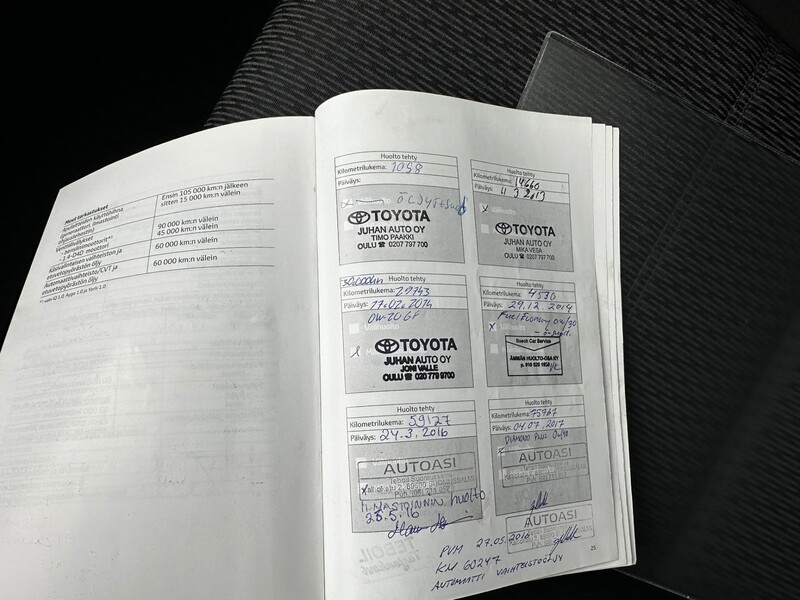 Muut tarkastukset
Apulaitteiden käyttöhihna
(generaattori, ilmastointi,
ohjaustehostin)
Ensin 105 000 km:n jälkeen
sitten 15 000 km:n välein
Venttiilivälykset
- bensiinimoottorit*¹
90 000 km:n välein
- 1.4-D4D moottori
45 000 km:n välein
Käsivalintaisen vaihteiston ja
etuvetopyörästön öljy
60 000 km:n välein
Automaattivaihteisto/CVT ja
etuvetopyörästön öljy
60 000 km:n välein
Huolto tehty
Kilometrilukema: 1058
Päiväys:
TOYOTA
JUHAN AUTO OY
TIMO PAAKKI
OULU ☎ 0207 797 700
Huolto tehty
Kilometrilukema: 14660
Päiväys: 4 3 2013
x
TOYOTA
JUHAN AUTO OY
MIKA VESA
OULU ☎ 0207 797 700
30.000km
Huolto tehty
Kilometrilukema: 29743
Päiväys: 17.02.2014
0W-20 GF
Välihuolto
TOYOTA
JUHAN AUTO OY
JONI VALLE
OULU ☎ 020 779 9700
Huolto tehty
Kilometrilukema:
Päiväys: 29.12.2014
Fuel Economy 0W/30
x
Bosch Car Service
ÄMMÄN HUOLTO-OSA KY
Huolto tehty
Kilometrilukema: 59127
Päiväys: 24.3.2016
AUTOASI
x
ILMASTOINNIN huolto
25.5.16
Huolto tehty
Kilometrilukema: 75967
Päiväys: 04.07.2017
DIAMOND PLUS 0W/30
AUTOASI
AUTOASI
PVM 27.05.2016
KM 60247
AUTOMATTI VAIHTEISTOÖLJY
25